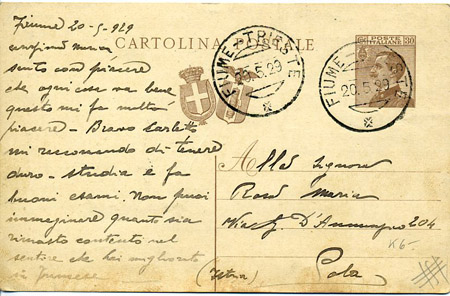 Fiume 20-5-929
CARTOLINA POSTALE
POSTE ITALIANE
30
FIUME-TRIESTE
20.5.29
FIUME-TRIESTE
20.5.29
sento con piacere
che ogni cosa va bene
questo mi fa molto
piacere - Bravo Carletto
mi raccomando di tenere
duro - studia e fa
buoni esami. Non puoi
immaginare quanto sia
rimasto contento nel
sentire che hai migliorato
in francese
Alla Signora
Maria
Via G. D'Annunzio 204
(Istria)
Pola
K6-